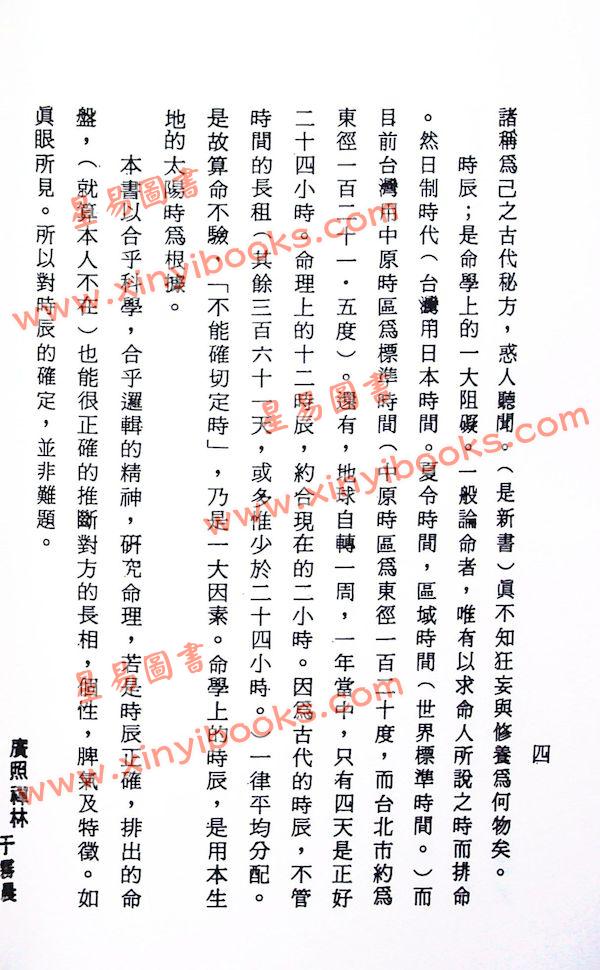 四
諸稱爲己之古代秘方，惑人聽聞。（是新書）眞不知狂妄與修養爲何物矣。
時辰；是命學上的一大阻礙。一般論命者，唯有以求命人所說之時而排命
。然日制時代（台灣用日本時間。夏令時間，區域時間（世界標準時間。）而
目前台灣用中原時區爲標準時間（中原時區爲東徑一百二十度，而台北市約爲
東徑一百二十一·五度）。還有，地球自轉一周，一年當中，只有四天是正好
二十四小時。命理上的十二時辰，約合現在的二小時。因爲古代的時辰，不管
時間的長租（其餘三百六十一天，或多惟少於二十四小時。）一律平均分配。
是故算命不驗，「不能確切定時」，乃是一大因素。命學上的時辰，是用本生
地的太陽時爲根據。
本書以合乎科學，合乎邏輯的精神，硏究命理，若是時辰正確，排出的命
盤，（就算本人不在）也能很正確的推斷對方的長相，個性，脾氣及特徵。如
眞眼所見。所以對時辰的確定，並非難題。
廣照禪林 于霧晨
星易圖書
www.xinyibooks.com
星易圖書
www.xinyibooks.com
星易圖書
www.xinyibooks.com